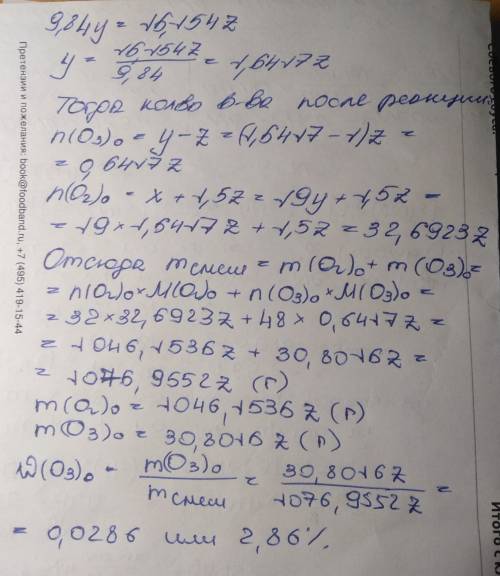 9,84y = 16,154z
y = 16,154z / 9,84 = 1,6417z
Тогда кол-во в-ва после реакции
n(O3)₀ = y - z = (1,6417 - 1)z =
= 0,6417z
n(O2)₀ = x + 1,5z = 19y + 1,5z =
= 19 × 1,6417z + 1,5z = 32,6923z
Отсюда mсмеш = m(O2)₀ + m(O3)₀ =
= n(O2)₀ × M(O2)₀ + n(O3)₀ × M(O3)₀ =
= 32 × 32,6923z + 48 × 0,6417z =
= 1046,1536z + 30,8016z =
= 1076,9552z (г)
m(O2)₀ = 1046,1536z (г)
m(O3)₀ = 30,8016z (г)
W(O3)₀ = m(O3)₀ / mсмеш = 30,8016z / 1076,9552z =
= 0,0286 или 2,86%.
Претензии и пожелания: book@foodband.ru, +7 (495) 419-15-44